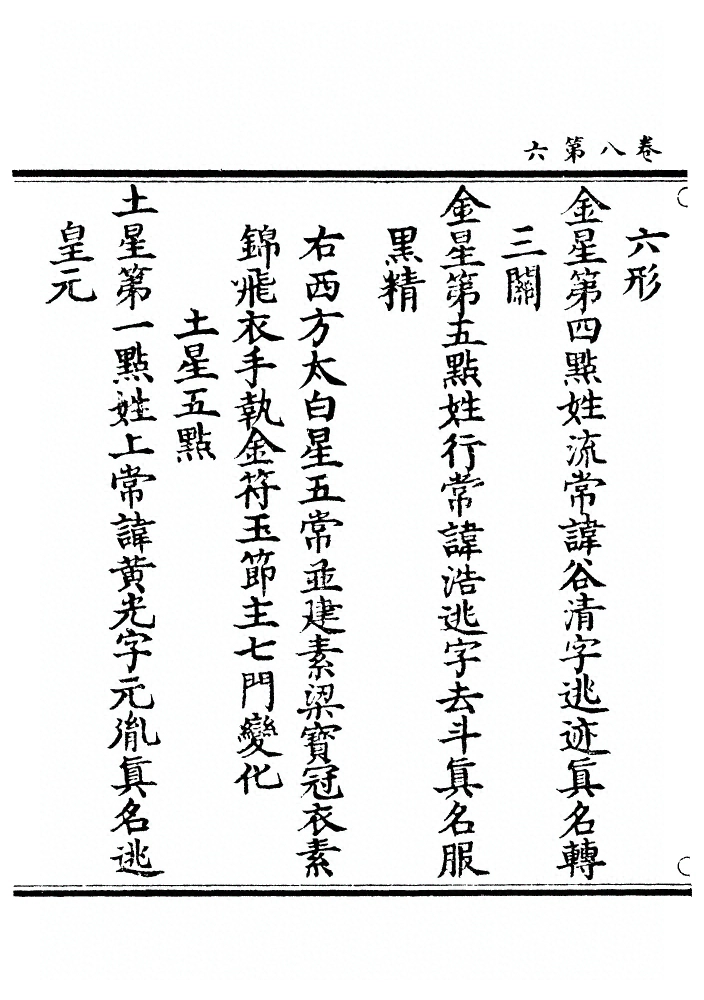 卷八第六
六形
金星第四點姓流常諱谷清字逃迹眞名轉
三關
金星第五點姓行常諱浩逃字去斗眞名服
黑精
右西方太白星五常並建素梁寶冠衣素
錦飛衣手執金符玉節主七門變化
土星五點
土星第一點姓上常諱黃光字元胤眞名逃
皇元